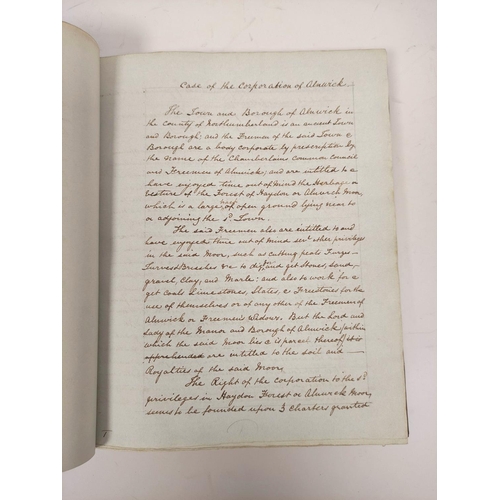 Case of the Corporation of Alnwick.
The Town and Borough of Alnwick in
the County of Northumberland is an ancient Town
and Borough; and the Freemen of the said Town &
Borough are a body corporate by prescription by
the name of the Chamberlains Common Council
and Freemen of Alnwick; and are intitled to &
have enjoyed time out of mind the Herbage or
Vesture of the Forest of Haydon or Alnwick Moor,
which is a large open ground lying near to
or adjoining the sd. Town.
The said Freemen also are intitled to and
have enjoyed time out of mind sevl. other privileges
in the said Moor, such as cutting peats Furzes
Turves &c to dig and get Stones, Sand,
gravel, Clay, and Marle; and also to work for &
get Coals Limestones, Slates, & Freestones for the
use of themselves or of any other of the Freemen of
Alnwick or Freemens Widows. But the Lord and
Lady of the Manor and Borough of Alnwick (within
which the said Moor lies & is parcel thereof) it is
apprehended are intitled to the soil and
Royalties of the said Moor.
The Right of the Corporation to the sd.
privileges in Haydon Forest or Alnwick Moor,
seems to be founded upon 3 Charters granted